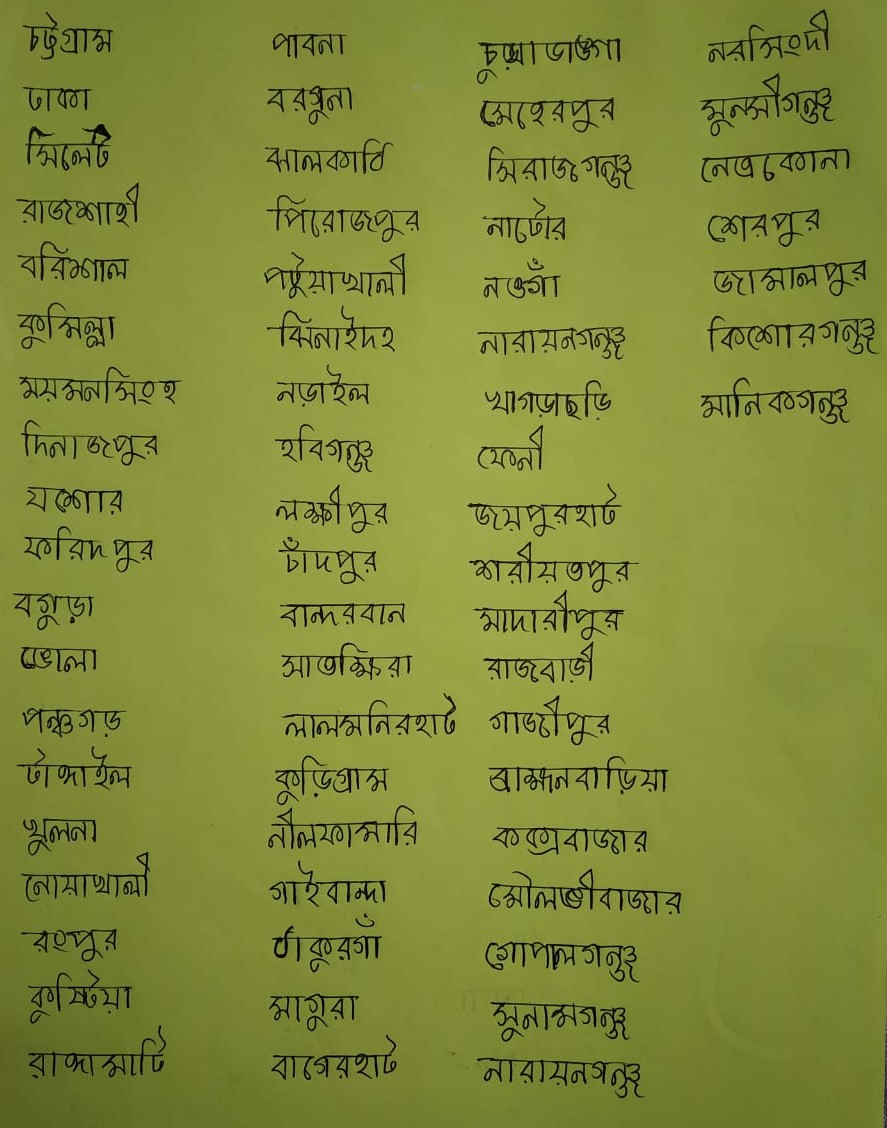 চট্টগ্রাম
ঢাকা
সিলেট
রাজশাহী
বরিশাল
কুমিল্লা
ময়মনসিংহ
দিনাজপুর
যশোর
ফরিদপুর
বগুড়া
ভোলা
পঞ্চগড়
টাঙ্গাইল
খুলনা
নোয়াখালী
রংপুর
কুষ্টিয়া
রাঙ্গামাটি
পাবনা
বরগুনা
ঝালকাঠি
পিরোজপুর
পটুয়াখালী
ঝিনাইদহ
নড়াইল
হবিগন্জ্ঞ
লক্ষীপুর
চাঁদপুর
বান্দরবান
সাতক্ষিরা
লালমনিরহাট
কুড়িগ্রাম
নীলফামারি
গাইবান্দা
ঠাকুরগাঁ
মাগুরা
বাগেরহাট
চুয়াডাঙগা
মেহেরপুর
সিরাজগন্জ্ঞ
নাটোর
নওগাঁ
নারায়নগন্জ্ঞ
খাগড়াছড়ি
ফেনী
জয়পুরহাট
শরীয়তপুর
মাদারীপুর
রাজবাড়ী
গাজীপুর
ব্রাহ্মনবাড়িয়া
কক্সবাজার
মৌলভীবাজার
গোপালগন্জ্ঞ
সুনামগন্জ্ঞ
নারায়নগন্জ্ঞ
নরসিংদী
মুনসীগন্জ্ঞ
নেত্রকোনা
শেরপুর
জামালপুর
কিশোরগন্জ্ঞ
মানিকগন্জ্ঞ